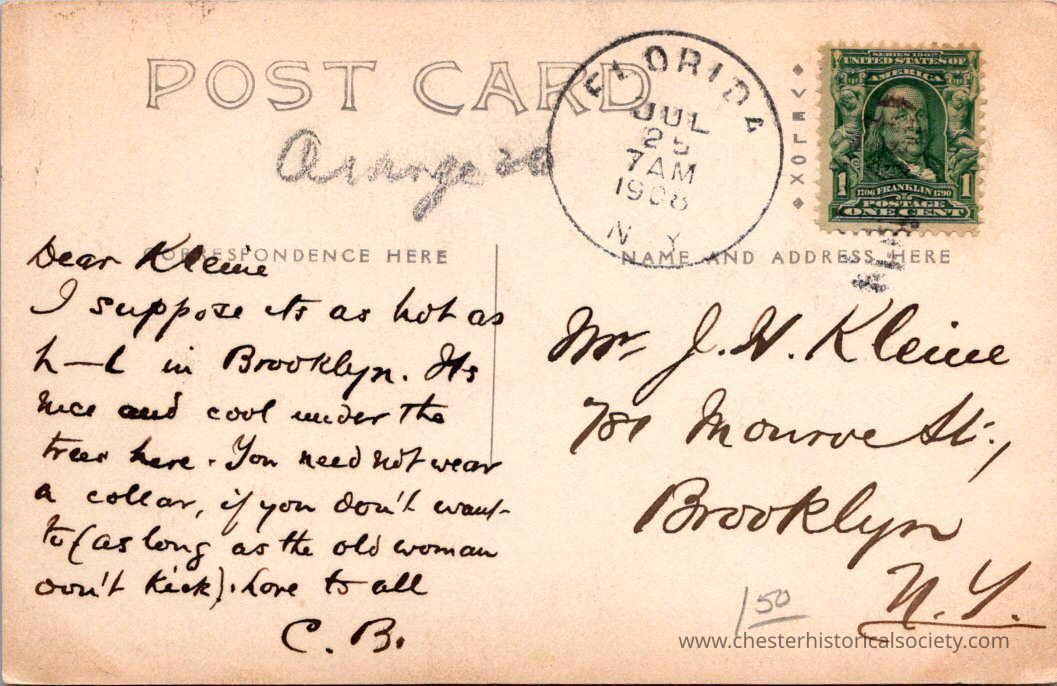 POST CARD
Orange co
FLORIDA
JUL
25
7 AM
1908
N.Y.
VELOX
SERIES 1902
UNITED STATES OF
AMERICA
1 1706 FRANKLIN 1790 1
POSTAGE
ONE CENT
CORRESPONDENCE HERE
NAME AND ADDRESS HERE
Dear Kleine
I suppose its as hot as
h—l in Brooklyn. Its
nice and cool under the
trees here. You need not wear
a collar, if you don't want
to (as long as the old woman
don't kick). Love to all
C. B.
Mr. J. H. Kleine
781 Monroe St.,
Brooklyn
N.Y.
1 50
www.chesterhistoricalsociety.com